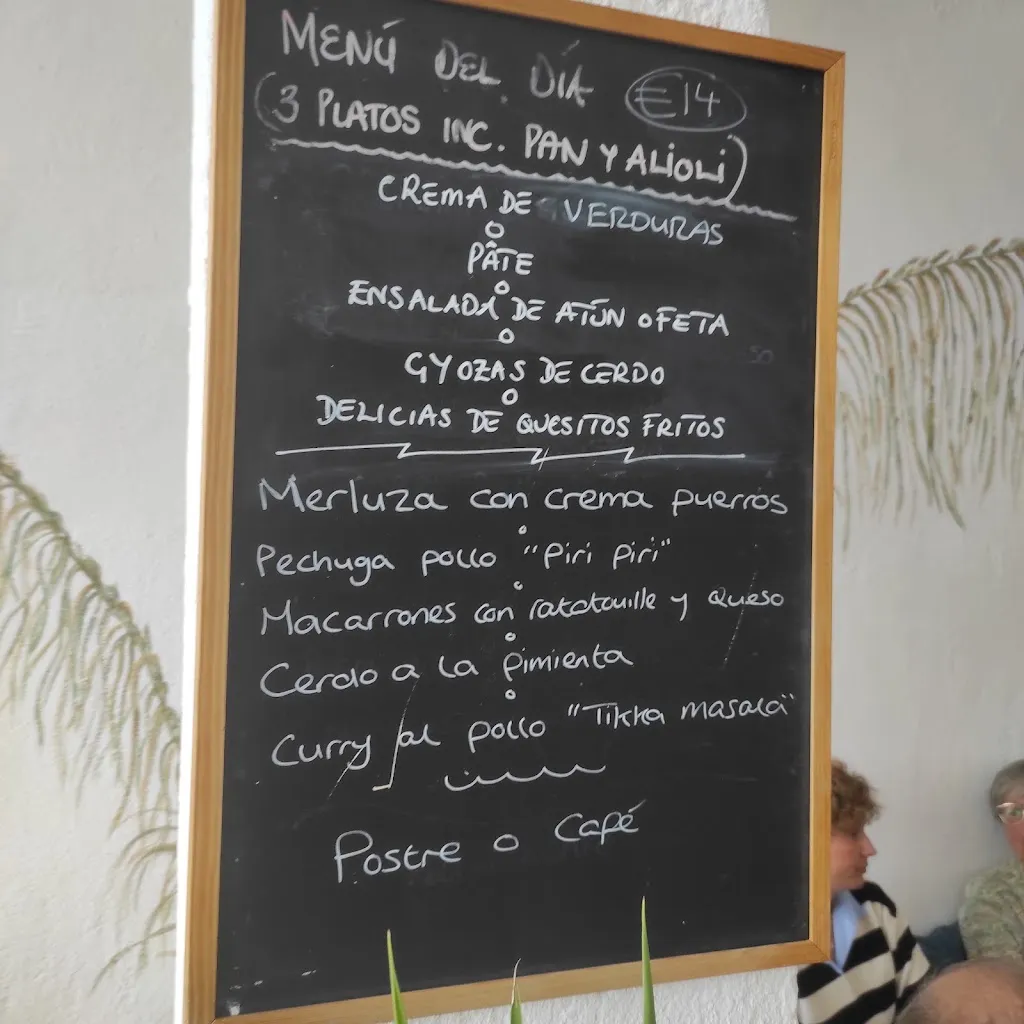 MENÚ DEL DÍA €14
(3 PLATOS INC. PAN Y ALIOLI)
CREMA DE VERDURAS
O
PÂTE
O
ENSALADA DE ATÚN O FETA
O
GYOZAS DE CERDO
O
DELICIAS DE QUESITOS FRITOS
Merluza con crema puerros
o
Pechuga pollo "Piri Piri"
o
Macarrones con ratatouille y queso
o
Cerdo a la pimienta
o
Curry al pollo "Tikka masala"
Postre o Café